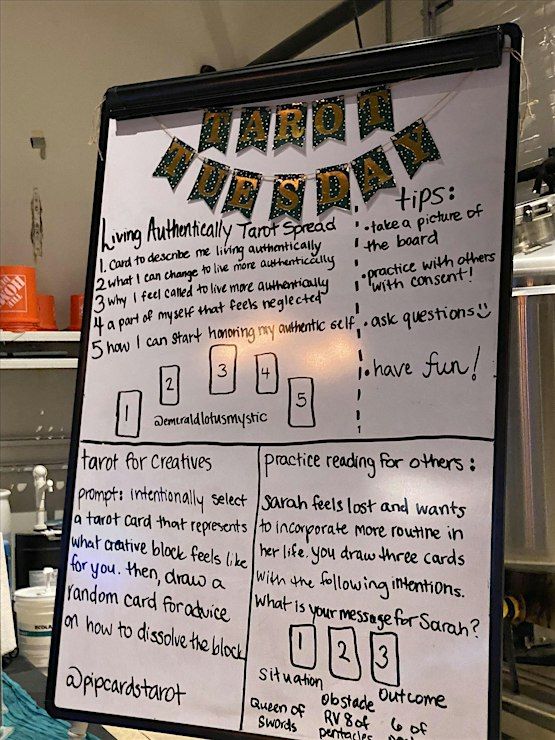 TAROT
TUESDAY
Living Authentically Tarot Spread
1. Card to describe me living authentically
2 what I can change to live more authentically
3 why I feel called to live more authentically
4 a part of myself that feels neglected
5 how I can start honoring my authentic self
1
2
3
4
5
@emeraldlotusmystic
tips:
• take a picture of
the board
• practice with others
with consent!
• ask questions
• have fun!
tarot for Creatives
prompt: intentionally select
a tarot card that represents
what creative block feels like
for you. then, draw a
random card for advice
on how to dissolve the block
@pipcardstarot
practice reading for others:
Sarah feels lost and wants
to incorporate more routine in
her life. you draw three cards
with the following intentions.
What is your message for Sarah?
1
2
3
Situation
Obstacle
Outcome
Queen of
Swords
RV 8 of
pentacles
6 of
ECOLAB